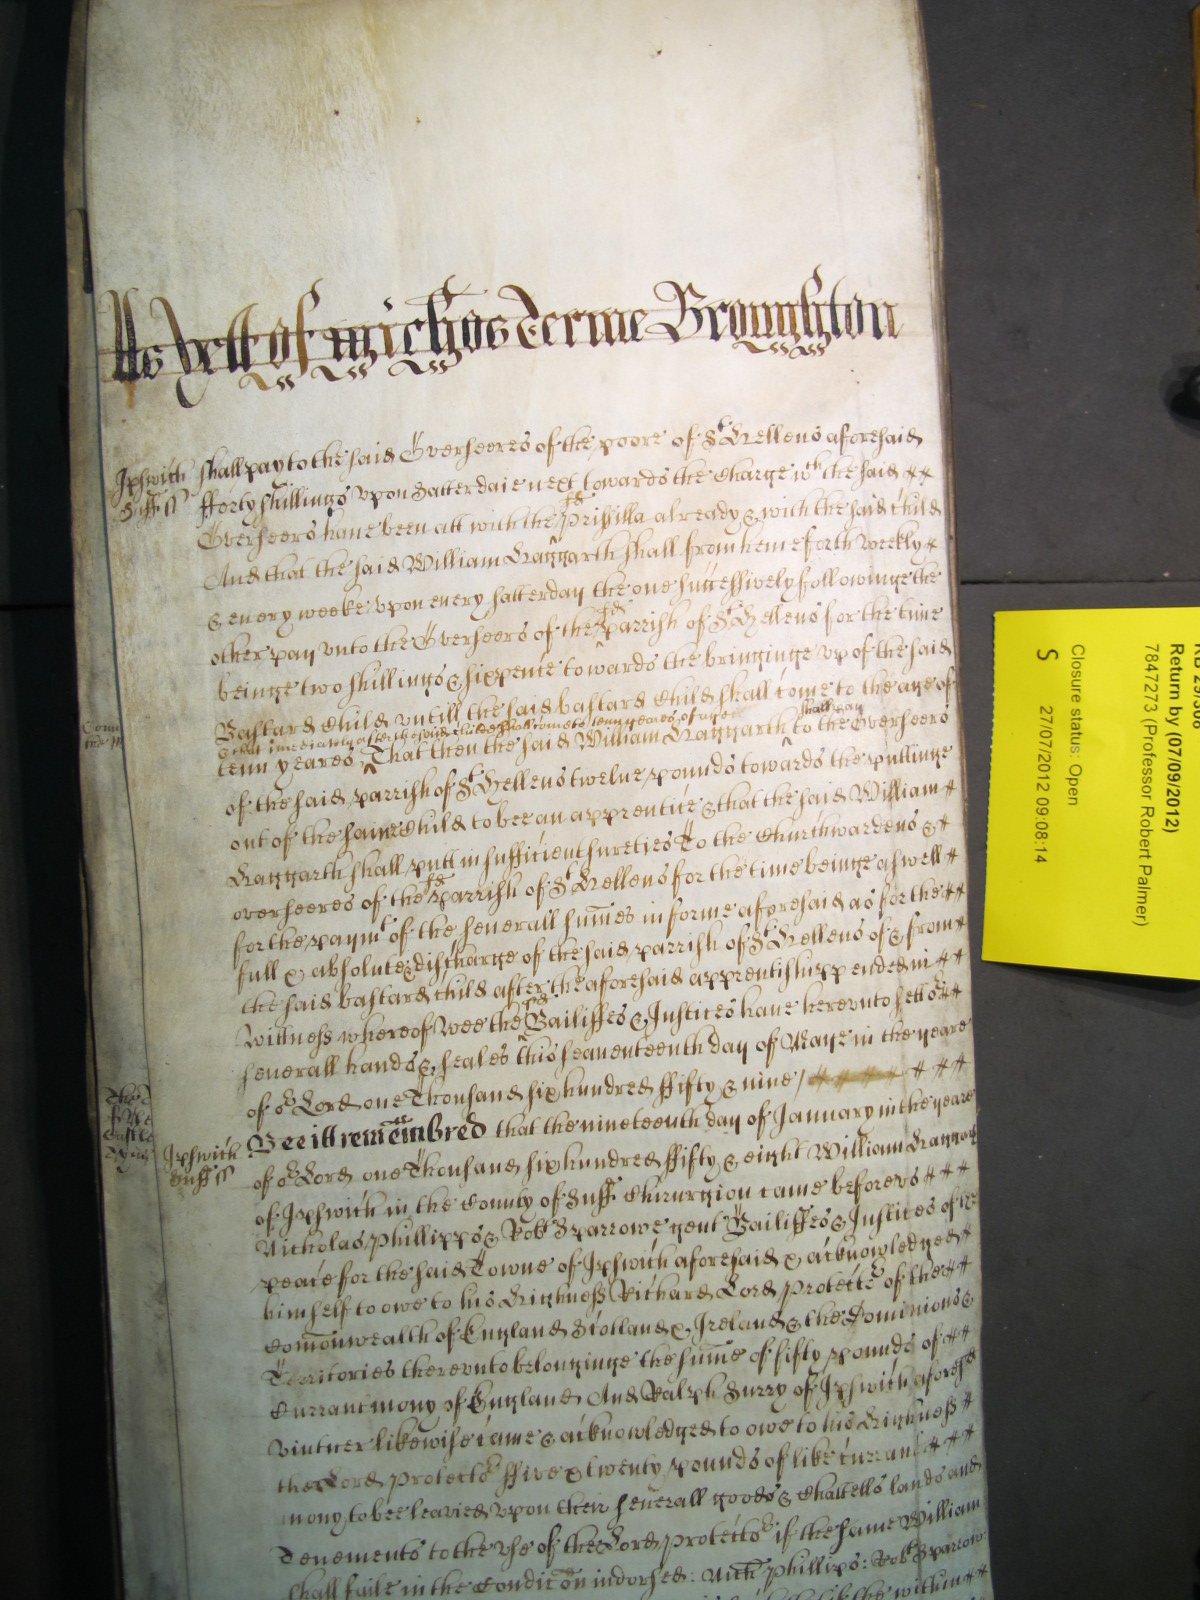 As yett of Michas Terme Broughton
Ipswich
Suff ss
shall pay to the said Overseeres of the poore of St Hellens aforesaid
fforty shillings upon Satterdaie next towards the Charge wch the said
Overseers have been att with the sd Prissilla already & with the said Child
And that the said William Haggarth shall from hence forth weekly
& every weeke upon every Satterday the one successively followinge the
other pay unto the Overseers of the sd parrish of St Hellens for the time
beinge two shillings & sixpence towards the bringinge up of the said
Bastard Child untill the said bastard Child shall come to the age of
& that imediately after the said childe shall come to tenn yeares of age
shall pay
tenn yeares That then the said William Haggarth to the Overseers
of the said parrish of St Hellens twelve pounds towards the puttinge
out of the same Child to bee an apprentice & that the said William
Haggarth shall putt in sufficient sureties To the Churchwardens &
overseeres of the sd parrish of St Hellens for the time beinge aswell
for the paymt of the severall sumes in forme aforesaid as for the
full & absolute discharge of the said parrish of St Hellens of & from
the said bastard child after the aforesaid apprentishipp ended in
wittness whereof wee the sd Bailiffes & Justices have hereunto sett or
severall hands & seales this seaventeenth day of Maye in the yeare
of or Lord one Thousand six hundred ffifty & nine /
Ipswich
Suff ss
Bee itt remembred that the nineteenth day of January in the yeare
of or Lord one Thousand six hundred ffifty & eight William
of Ipswich in the County of Suff Chirurgion came before us
Nicholas Phillipps & Robt Sparrowe gent Bailiffes & Justices of the
peace for the said Towne of Ipswich aforesaid & acknowledged
himself to owe to his Highness Richard Lord Protector of the
Comonwealth of England Scotland & Ireland & the Dominions &
Territories thereunto belonginge the sume of fifty pounds of
Currant mony of England And Ralph Surry of Ipswich aforesd
vintner likewise came & acknowledged to owe to his Highness
the Lord Protector ffive & twenty pounds of like currant
mony to bee leavied upon their severall goods & Chattells lands and
Tenements to the use of the Lord Protector if the same William
shall faile in the Condicon indorsed: Nich Phillips: Robt Sparrow
Return by (07/09/2012)
7847273 (Professor Robert Palmer)
Closure status: Open
S 27/07/2012 09:08:14